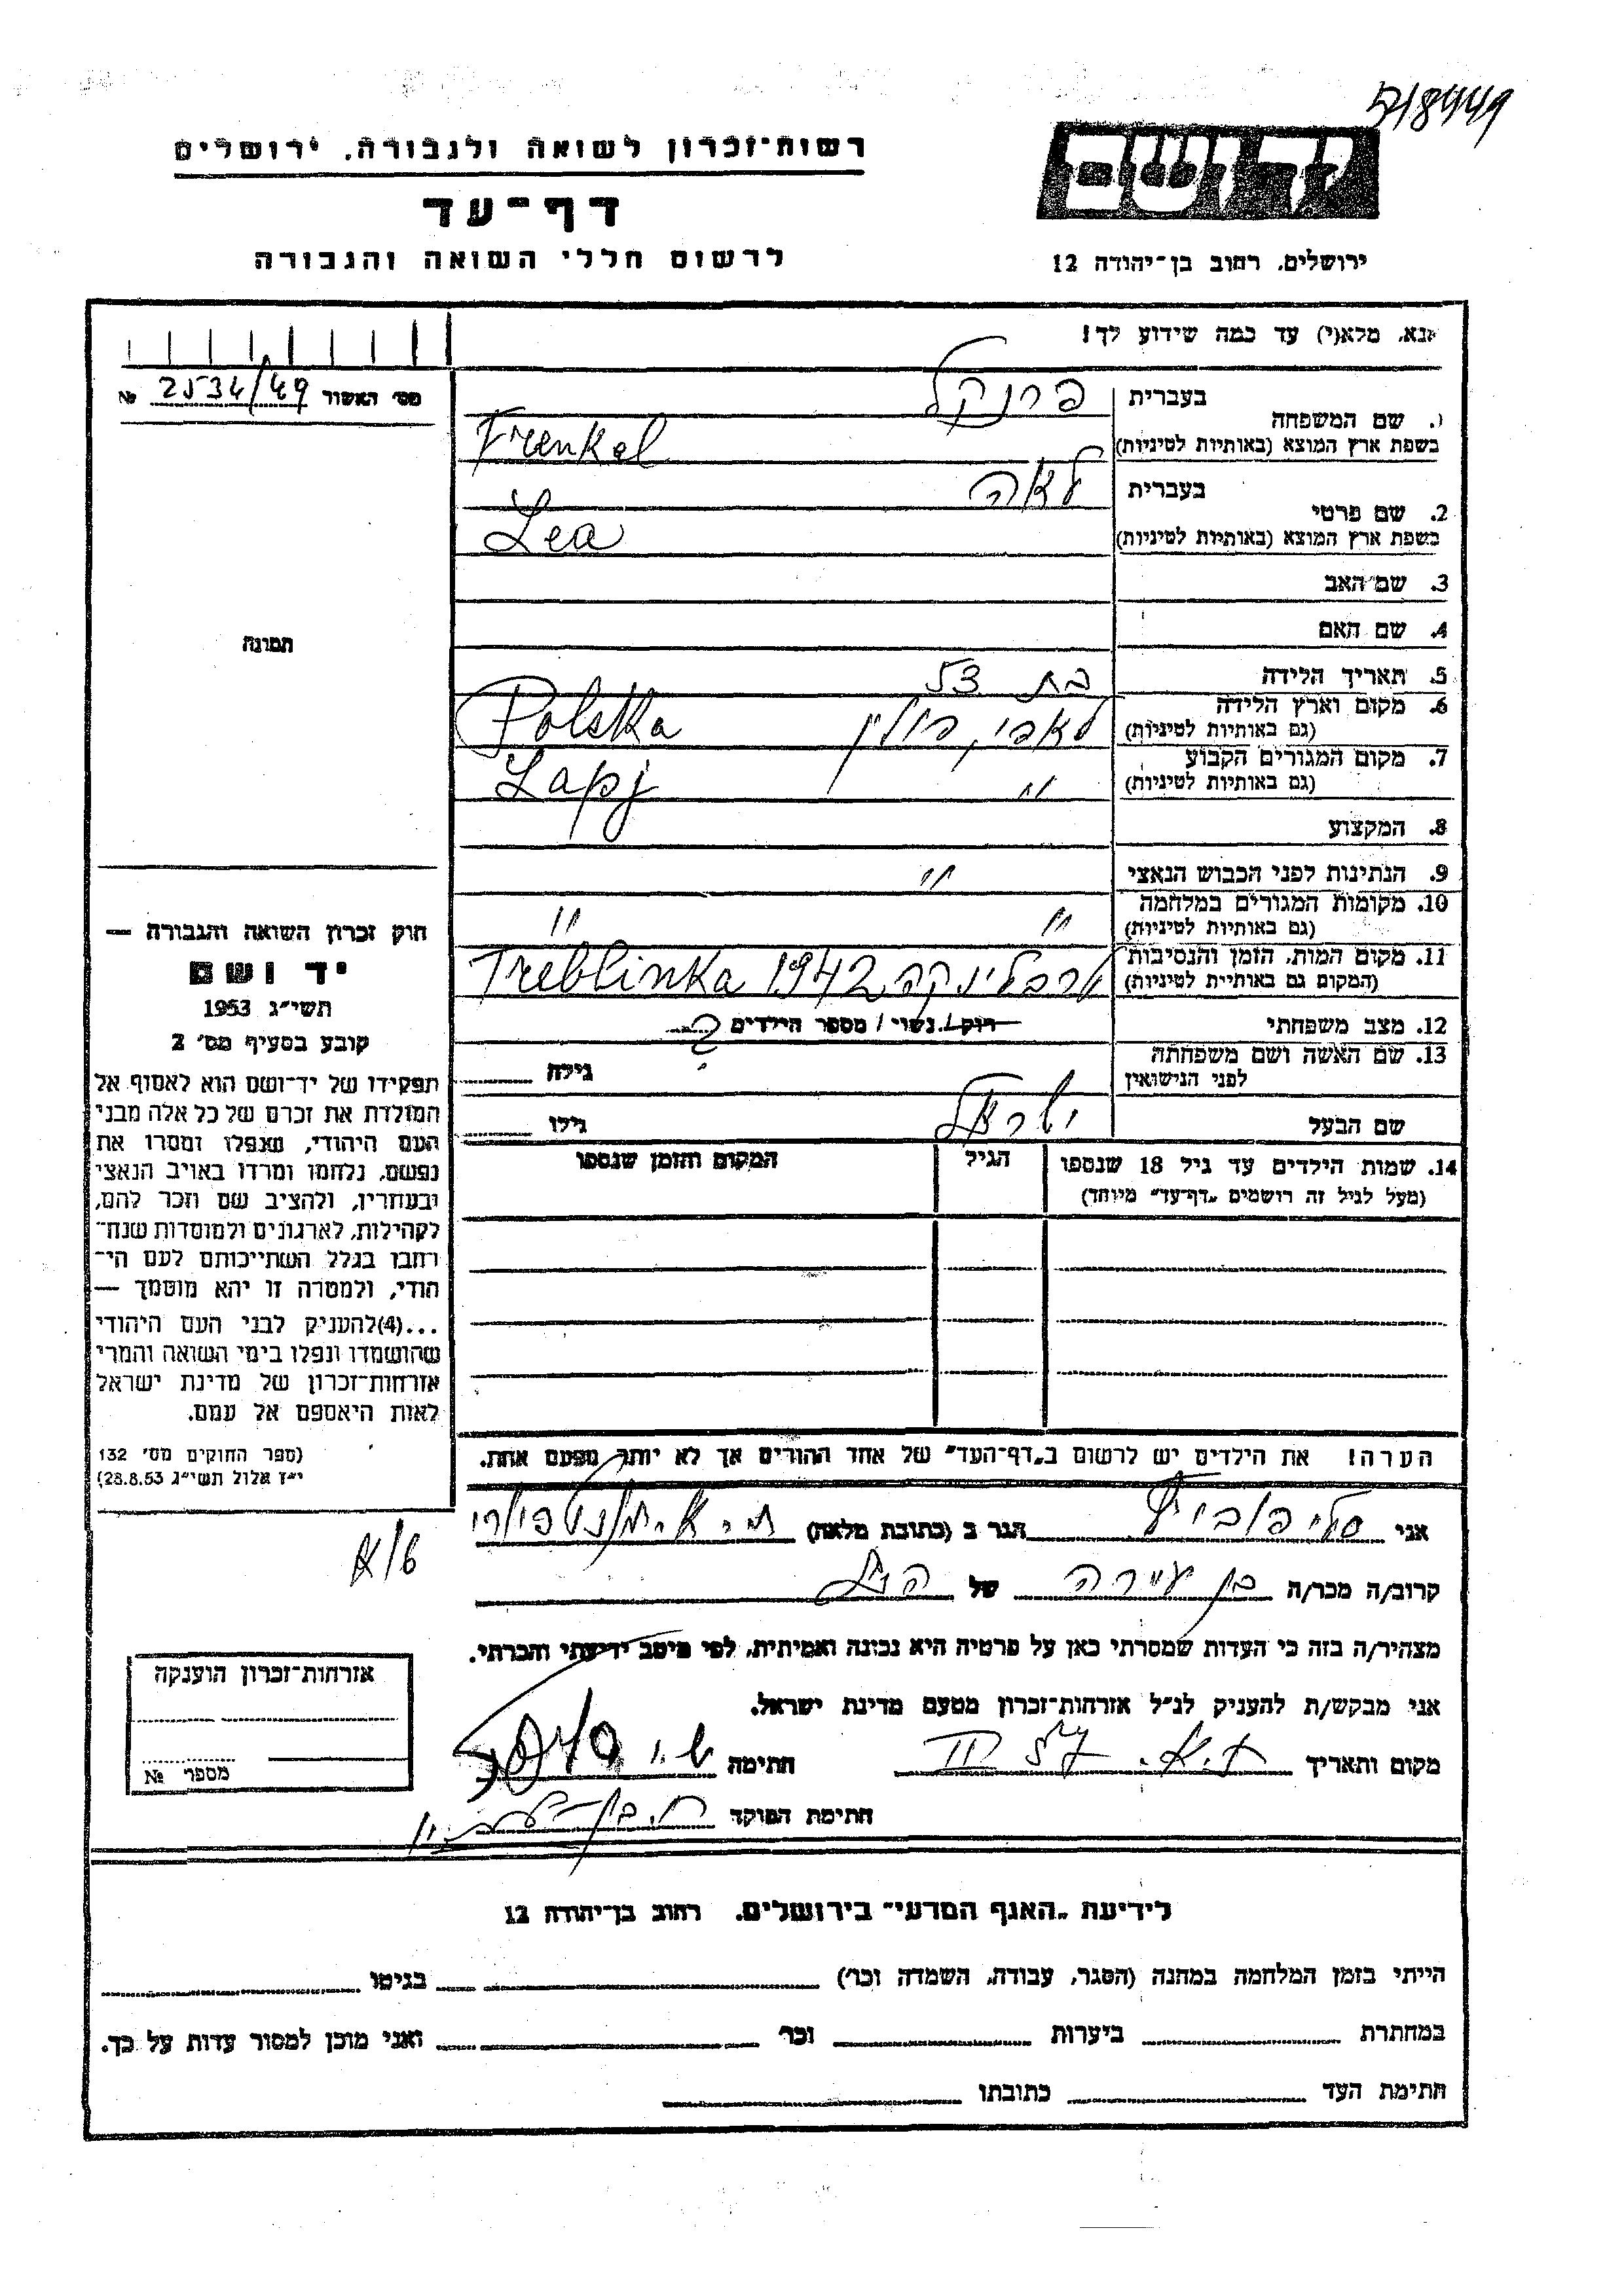 718449
רשות־זכרון לשואה ולגבורה, ירושלים
יד ושם
דף־עד
לרשום חללי השואה והגבורה
ירושלים, רחוב בן־יהודה 12
נא, מלא(י) עד כמה שידוע לך!
מס׳ האשור 2534/49 №
1. שם המשפחה
בעברית פרנקל
בשפת ארץ המוצא (באותיות לטיניות) Frenkel
2. שם פרטי
בעברית לאה
בשפת ארץ המוצא (באותיות לטיניות) Lea
3. שם האב
4. שם האם
תמונה
5. תאריך הלידה בת 53
6. מקום וארץ הלידה לאפי, פולין Polska
(גם באותיות לטיניות)
7. מקום המגורים הקבוע " Lapj
(גם באותיות לטיניות)
8. המקצוע
9. הנתינות לפני הכבוש הנאצי "
10. מקומות המגורים במלחמה " "
(גם באותיות לטיניות)
11. מקום המות, הזמן והנסיבות טרבלינקה 1942 Treblinka
(המקום גם באותיות לטיניות)
12. מצב משפחתי רוק/ נשוי/ מספר הילדים ?
13. שם האשה ושם משפחתה גילה
לפני הנישואין
שם הבעל ישראל גילו
14. שמות הילדים עד גיל 18 שנספו הגיל המקום והזמן שנספו
(מעל לגיל זה רושמים „דף־עד״ מיוחד)
חוק זכרון השואה והגבורה —
יד ושם
תשי״ג 1953
קובע בסעיף מס׳ 2
תפקידו של יד־ושם הוא לאסוף אל
המולדת את זכרם של כל אלה מבני
העם היהודי, שנפלו ומסרו את
נפשם, נלחמו ומרדו באויב הנאצי
ובעוזריו, ולהציב שם וזכר להם,
לקהילות, לארגונים ולמוסדות שנח־
רבו בגלל השתייכותם לעם הי־
הודי, ולמטרה זו יהא מוסמך —
...(4)להעניק לבני העם היהודי
שהושמדו ונפלו בימי השואה והמרי
אזרחות־זכרון של מדינת ישראל
לאות היאספם אל עמם.
(ספר החוקים מס׳ 132
י״ז אלול תשי״ג 28.8.53)
הערה! את הילדים יש לרשום ב„דף־העד״ של אחד ההורים אך לא יותר מפעם אחת.
אני הגר ב (כתובת מלאה) ת.א.
קרוב/ה מכר/ה בן עירה של הנ״ל
מצהיר/ה בזה כי העדות שמסרתי כאן על פרטיה היא נכונה ואמיתית, לפי מיטב ידיעתי והכרתי.
אני מבקש/ת להעניק לנ״ל אזרחות־זכרון מטעם מדינת ישראל.
מקום ותאריך ת.א. חתימה
חתימת הפוקד
אזרחות־זכרון הוענקה
מספר №
לידיעת „האגף המדעי״ בירושלים, רחוב בן־יהודה 12
הייתי בזמן המלחמה במחנה (הסגר, עבודה, השמדה וכו׳) בגיטו
במחתרת ביערות וכו׳ ואני מוכן למסור עדות על כך.
חתימת העד כתובתו